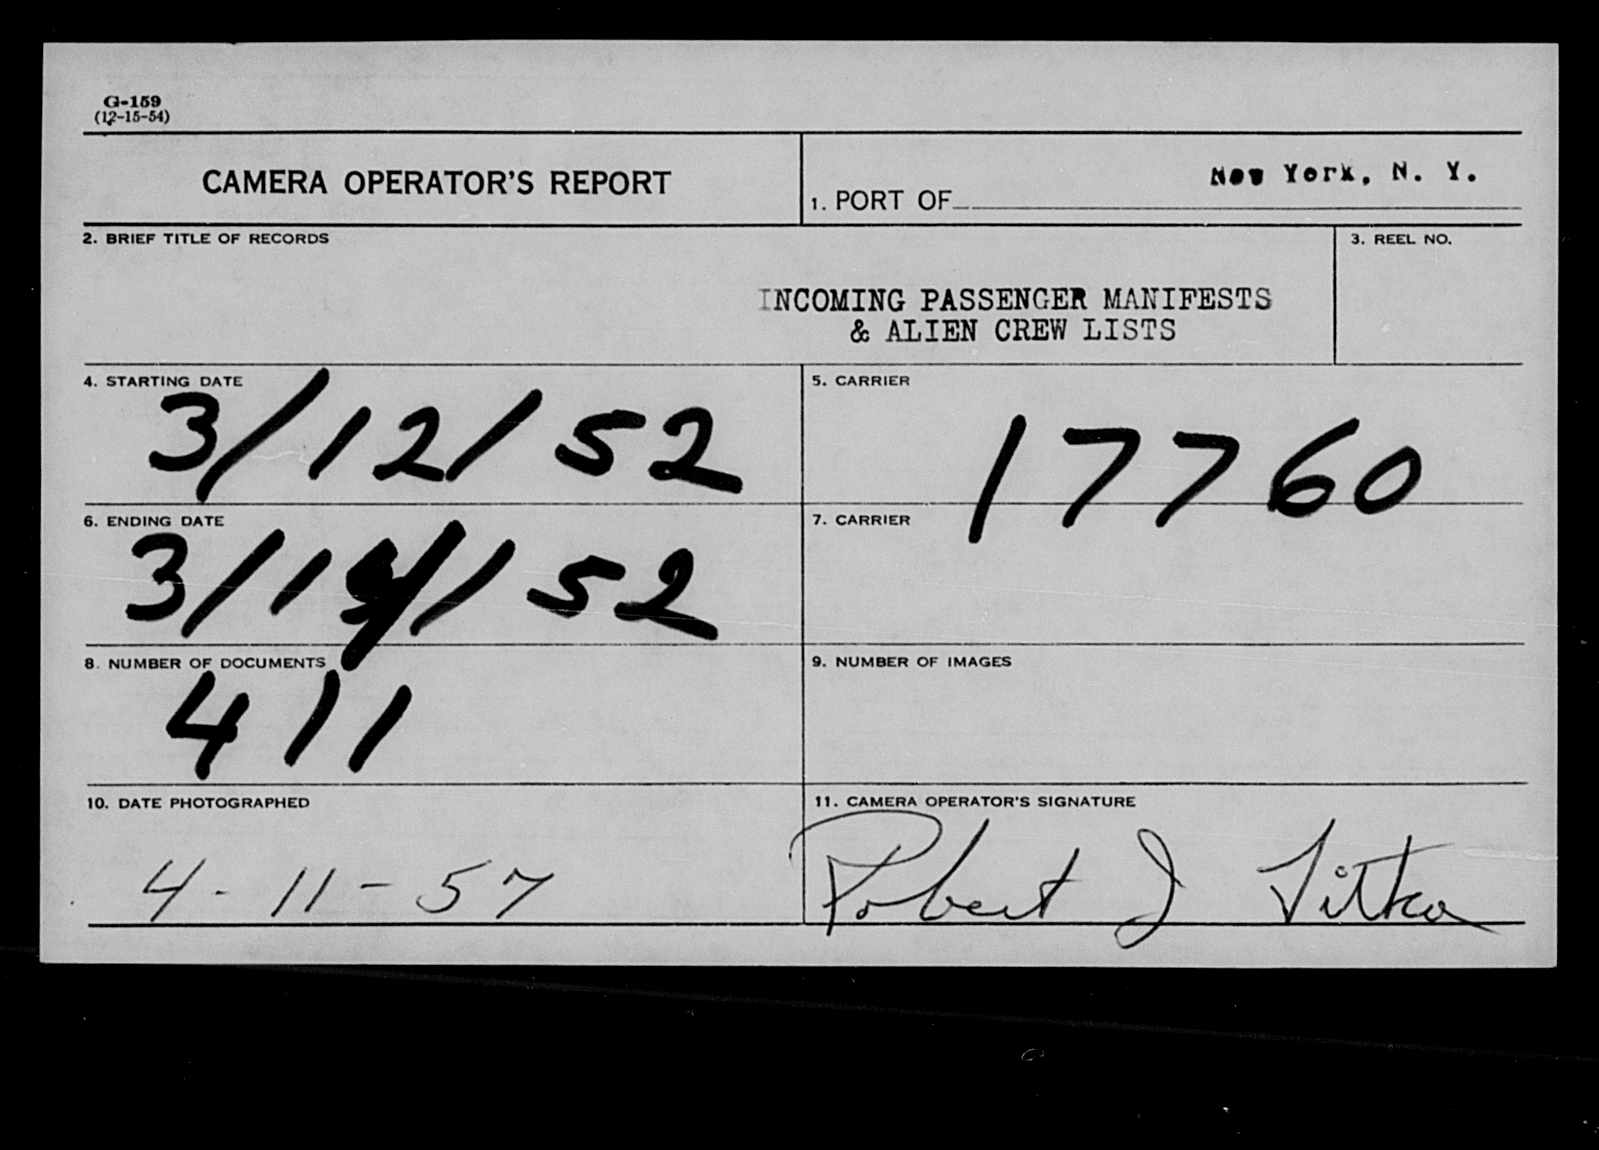 G-159
(12-15-54)
CAMERA OPERATOR'S REPORT
1. PORT OF New York, N. Y.
2. BRIEF TITLE OF RECORDS
INCOMING PASSENGER MANIFESTS
& ALIEN CREW LISTS
3. REEL NO.
4. STARTING DATE
3/12/52
5. CARRIER
17760
6. ENDING DATE
7. CARRIER
8. NUMBER OF DOCUMENTS
411
9. NUMBER OF IMAGES
10. DATE PHOTOGRAPHED
4-11-57
11. CAMERA OPERATOR'S SIGNATURE
Robert J